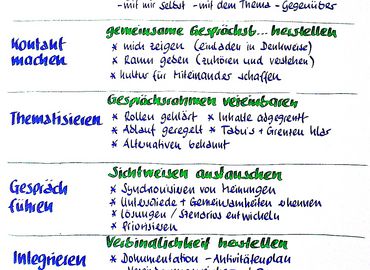 -mit mir selbst -mit dem Thema -Gegenüber
gemeinsame Gesprächsb... herstellen
Kontakt machen
* mich zeigen (einladen in Denkweise)
* Raum geben (zuhören und verstehen)
* Kultur für Miteinander schaffen
Gesprächsrahmen vereinbaren
Thematisieren
* Rollen geklärt * Inhalte abgegrenzt
* Ablauf geregelt * Tabu's + Grenzen klar
* Alternativen bekannt
Sichtweisen austauschen
Gespräch führen
* Synchronisieren von Meinungen
* Unterschiede + Gemeinsamkeiten erkennen
* Lösungen / Szenarios entwickeln
* Priorisieren
Verbindlichkeit herstellen
Integrieren
* Dokumentation - Aktivitätenplan